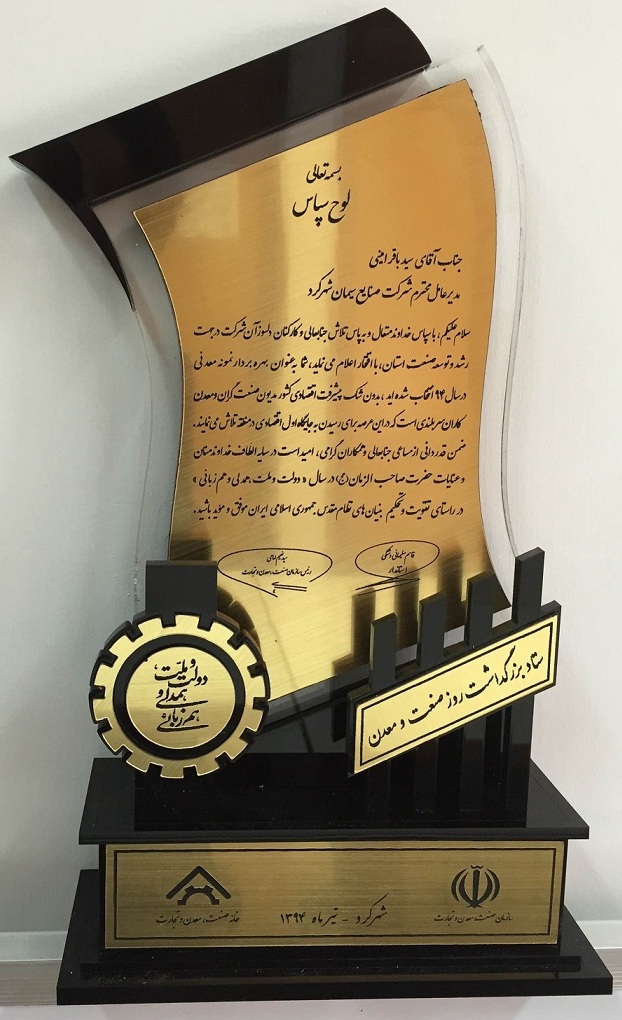 بسمه تعالی
لوح سپاس
جناب آقای سید باقر امینی
مدیر عامل محترم شرکت صنایع سیمان شهرکرد
سلام علیکم، با سپاس خداوند متعال و به پاس تلاش جنابعالی و کارکنان دلسوز آن شرکت در جهت
رشد و توسعه صنعت استان، با افتخار اعلام می نماید، شما به عنوان بهره بردار نمونه معدنی
در سال ۹۴ انتخاب شده اید، بدون شک پیشرفت اقتصادی کشور مدیون صنعت گران و معدن
کاران سربلندی است که در این عرصه برای رسیدن به جایگاه اول اقتصادی در منطقه تلاش می نمایند.
ضمن قدردانی از مساعی جنابعالی و همکاران گرامی، امید است در سایه الطاف خداوند منان
و عنایات حضرت صاحب الزمان (عج) در سال « دولت و ملت، همدلی و هم زبانی »
در راستای تقویت و تحکیم بنیان های نظام مقدس جمهوری اسلامی ایران موفق و موید باشید.
قاسم سلیمانی دشتکی
استاندار
سید نعیم امامی
رئیس سازمان صنعت، معدن و تجارت
دولت و ملت،
همدلی و
هم زبانی
ستاد بزرگداشت روز صنعت و معدن
سازمان صنعت، معدن و تجارت
شهرکرد - تیر ماه ۱۳۹۴
خانه صنعت، معدن و تجارت